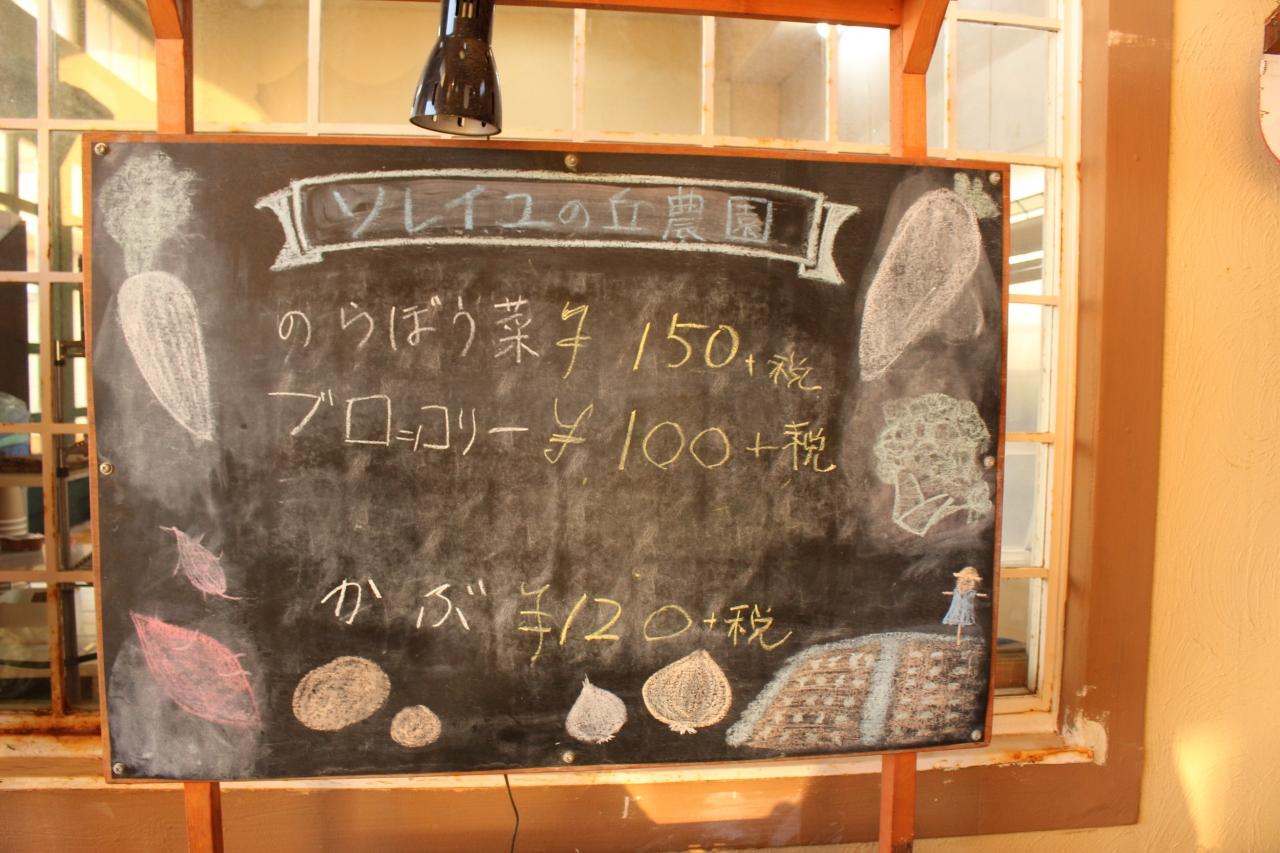 ソレイユの丘農園
のらぼう菜 ¥ 150+税
ブロッコリー ¥ 100+税
かぶ ¥120+税